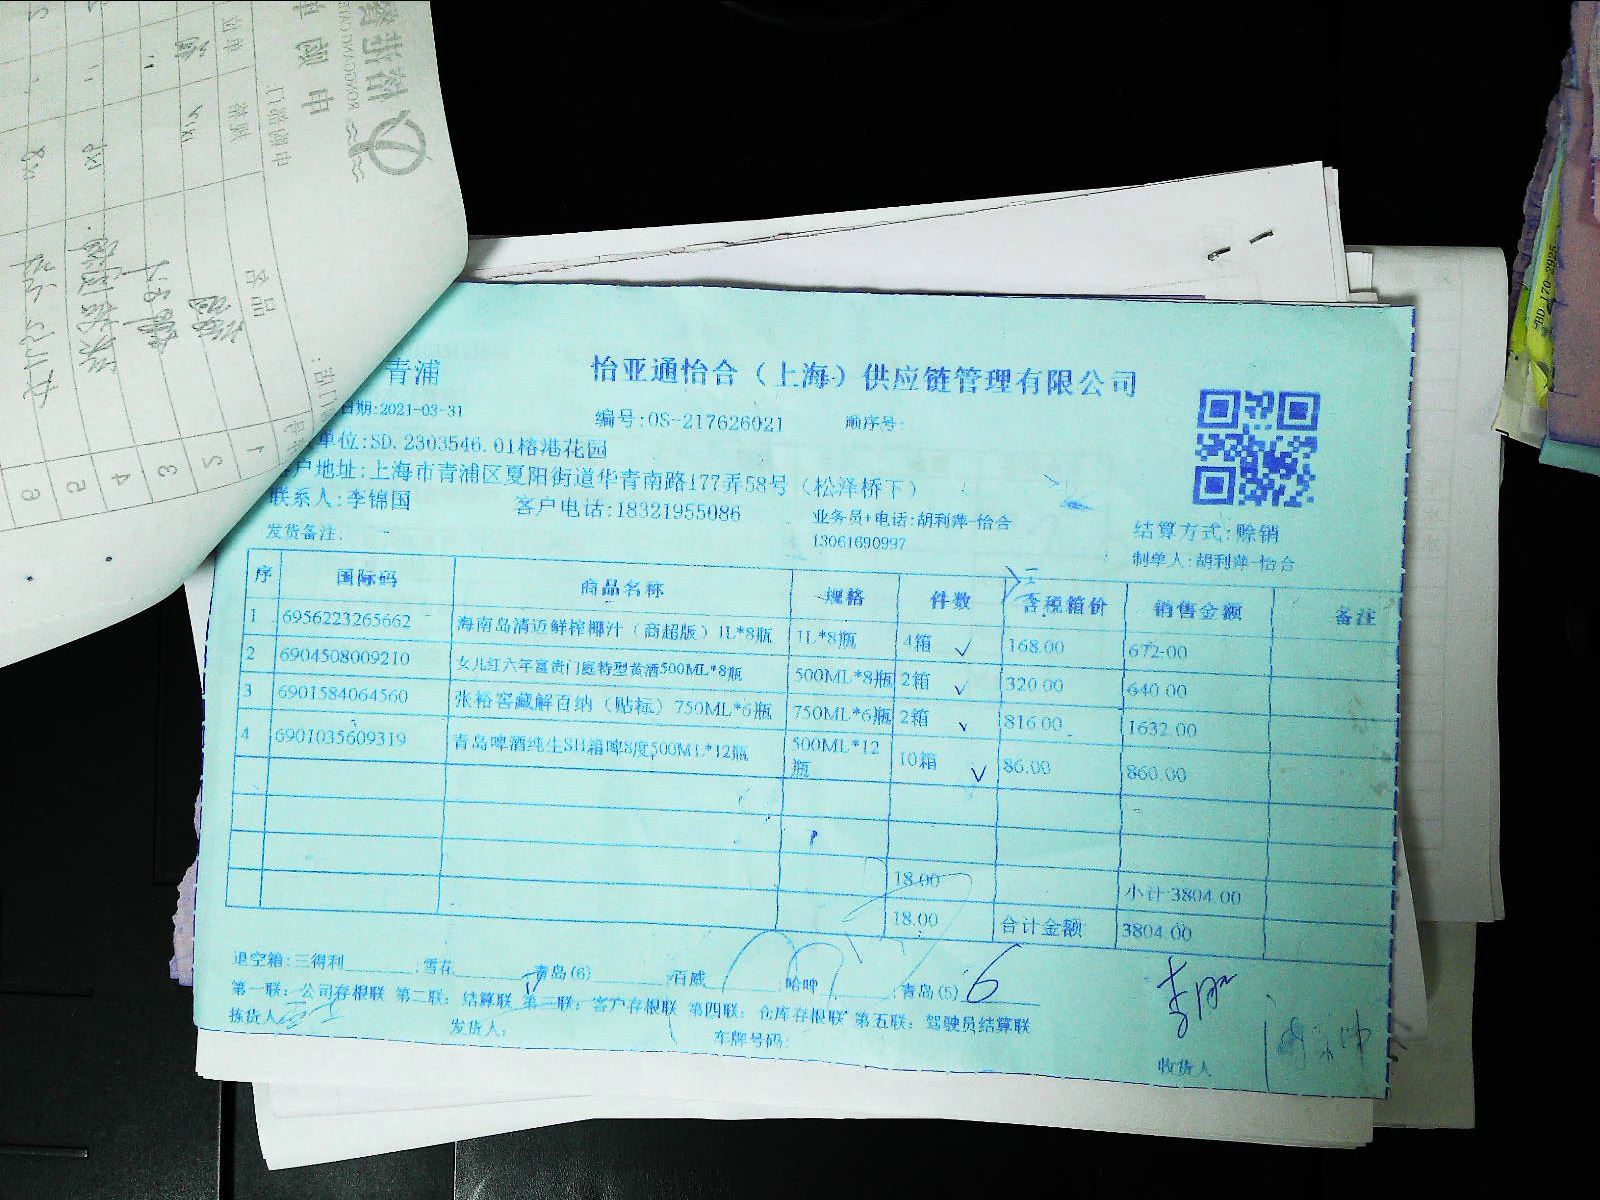 青浦 怡亚通怡合（上海）供应链管理有限公司
日期:2021-03-31 编号:OS-217626021 顺序号:
单位:SD.2303546.01榕港花园
户地址:上海市青浦区夏阳街道华青南路177弄58号（松泽桥下）
联系人:李锦国 客户电话:18321955086 业务员+电话:胡利萍-怡合 13061690997 结算方式:赊销
发货备注: 制单人:胡利萍-怡合
序 国际码 商品名称 规格 件数 含税箱价 销售金额 备注
1 6956223265662 海南岛清迈鲜榨椰汁（商超版）1L*8瓶 1L*8瓶 4箱 168.00 672.00
2 6904508009210 女儿红六年富贵门庭特型黄酒500ML*8瓶 500ML*8瓶 2箱 320.00 640.00
3 6901584064560 张裕窖藏解百纳（贴标）750ML*6瓶 750ML*6瓶 2箱 816.00 1632.00
4 6901035609319 青岛啤酒纯生SH箱啤8度500ML*12瓶 500ML*12瓶 10箱 86.00 860.00
18.00 小计 3804.00
18.00 合计金额 3804.00
退空箱:三得利 :雪花 青岛(6) :百威 :哈啤 :青岛(5) 6
第一联：公司存根联 第二联：结算联 第三联：客户存根联 第四联：仓库存根联 第五联：驾驶员结算联
拣货人 发货人: 车牌号码: 收货人